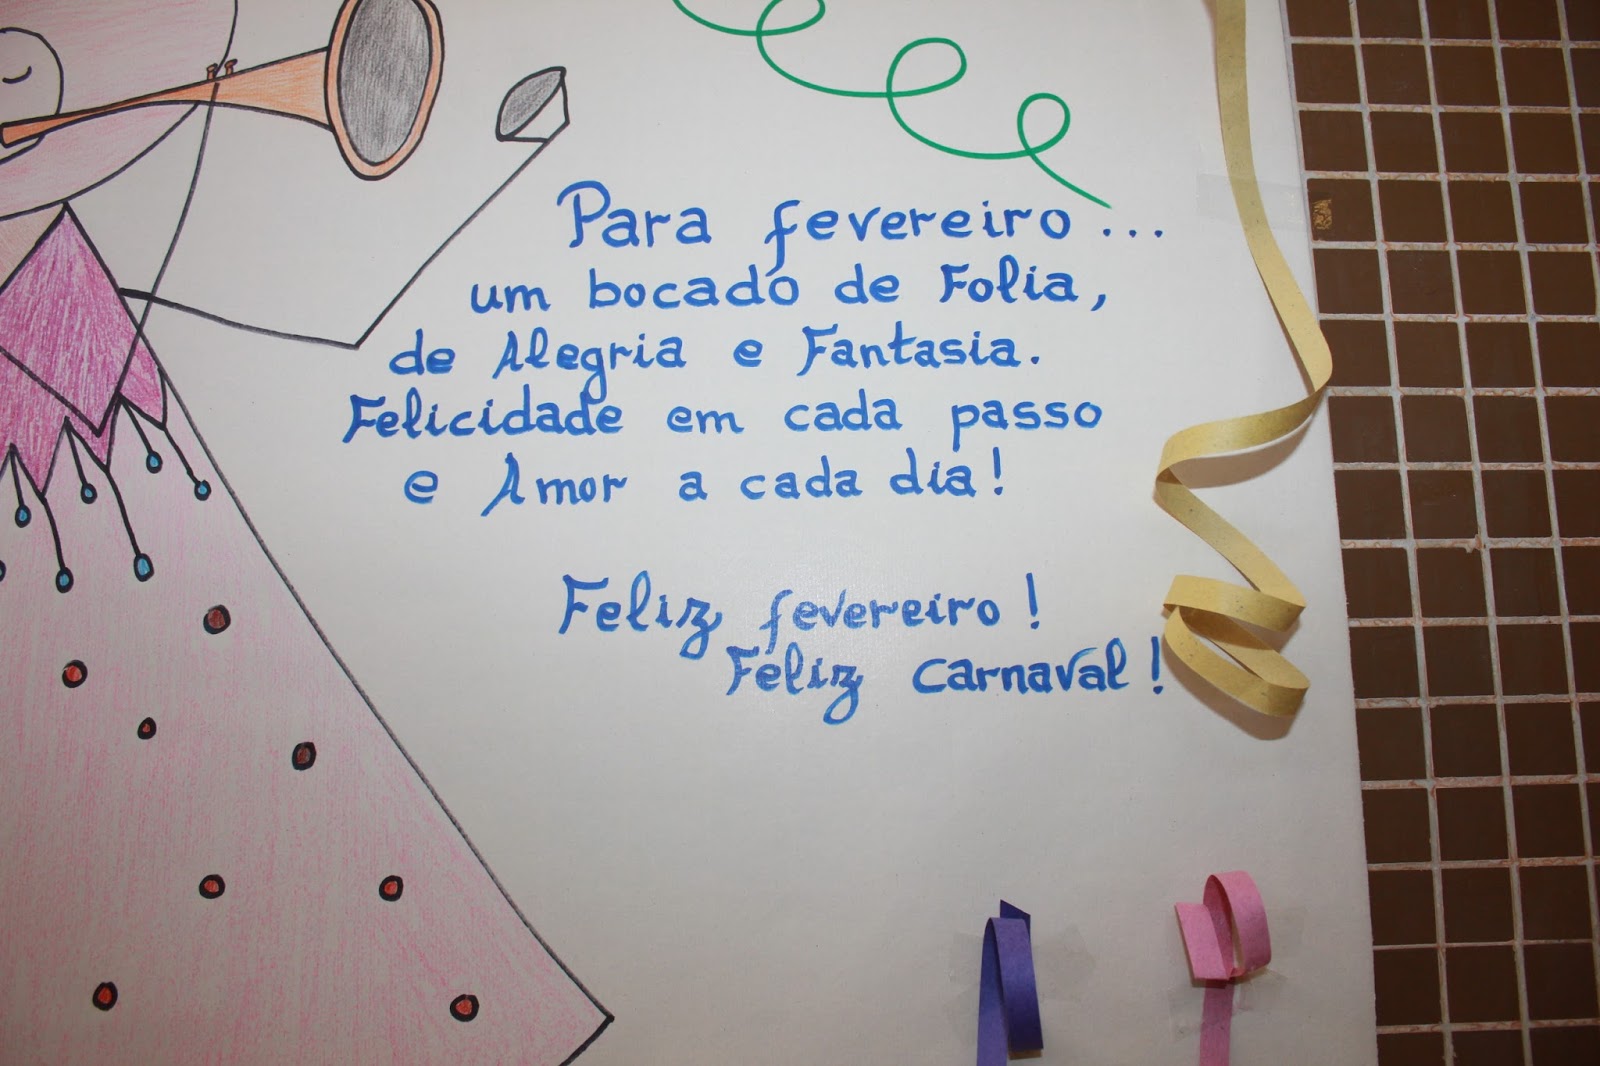 Para fevereiro...
um bocado de Folia,
de Alegria e Fantasia.
Felicidade em cada passo
e Amor a cada dia!
Feliz fevereiro!
Feliz Carnaval!